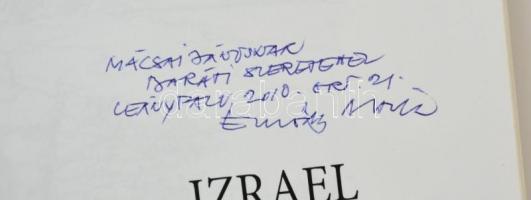 MÁCSAI JÁNOSNAK
BARÁTI SZERETETTEL
LEÁNYFALU, 2010. 21.
darabanth
IZRAEL